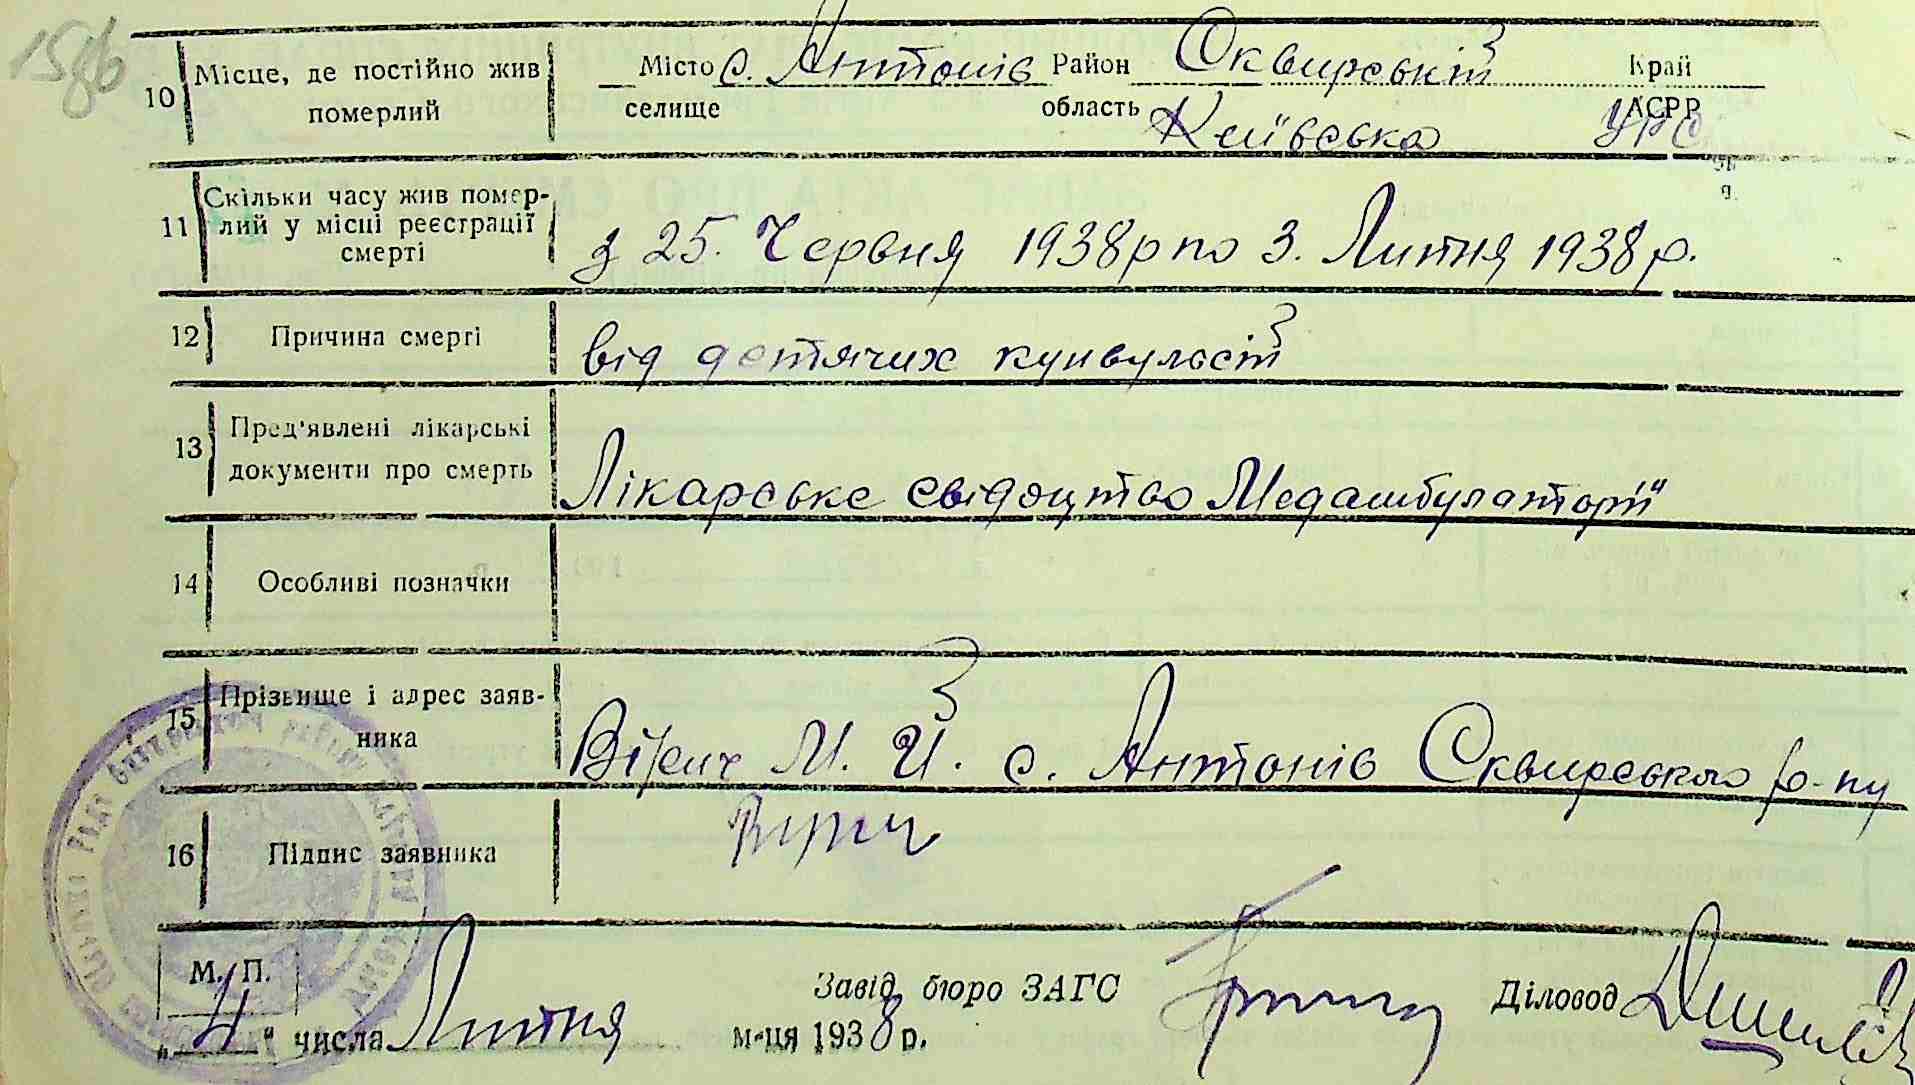 1586
10 Місце, де постійно жив померлий
Місто с. Антонів Район Сквирській Край
селище область Київська АСРР УРС
11 Скільки часу жив помер-
лий у місці реєстрації
смерті
з 25. Червня 1938р по 3. Липня 1938 р.
12 Причина смерті від детячих кунвульсій
13 Пред'явлені лікарські
документи про смерть
Лікарське свідоцтво Медамбулаторії
14 Особливі позначки
15 Прізвище і адрес заяв-
ника
М. Й. с. Антонів Сквирського р-ну
16 Підпис заявника
М. П. Завід. бюро ЗАГС Діловод
„4" числа Липня м-ця 1938 р.